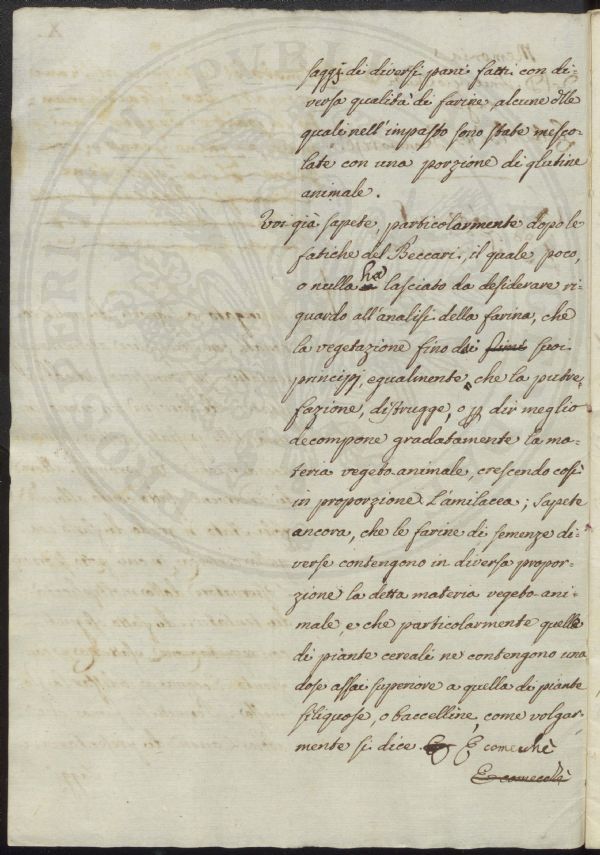 saggj di diversi pani fatti con di=
versa qualità di farine alcune dlle
quali nell'impasto sono state mesco=
late con una porzione di glutine
animale.
Voi già sapete, particolarmente dopo le
fatiche del Beccari, il quale poco,
o nulla ha lasciato da desiderare ri=
guardo all'analisi della farina, che
la vegetazione fino dai suoi
principj, egualmente, che la putre=
fazione, distrugge, o p dir meglio
decompone gradatamente la ma=
teria vegeto-animale, crescendo così
in proporzione l'amilacea; sapete
ancora, che le farine di semenze di=
verse contengono in diversa propor=
zione la detta materia vegeto-ani=
male, e che particolarmente quelle
di piante cereali ne contengono una
dose assai superiore a quella di piante
siliquose, o baccelline, come volgar=
mente si dice. E comechè
E comecchè